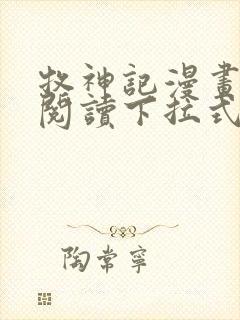 牧神記漫畫
閱讀下拉式
陶常寧